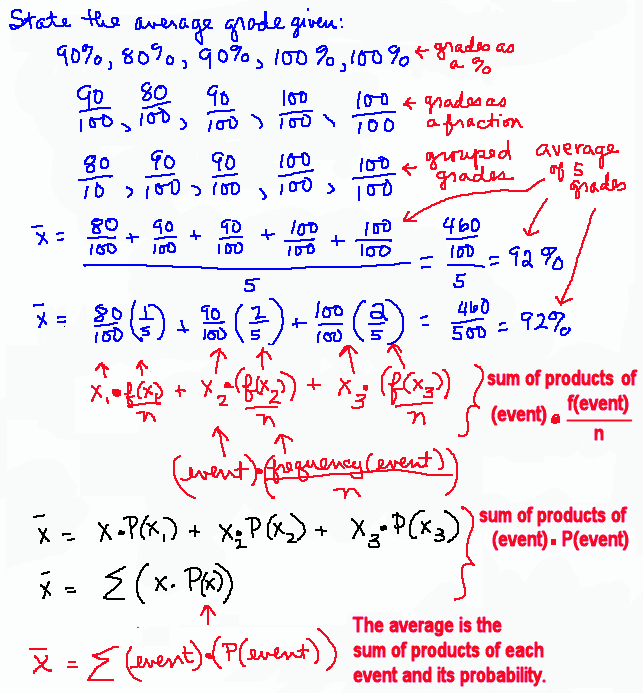 State the average grade given:
90%, 80%, 90%, 100%, 100% ← grades as a %
90/100, 80/100, 90/100, 100/100, 100/100 ← grades as a fraction
80/10, 90/100, 90/100, 100/100, 100/100 ← grouped grades
average of 5 grades
x̄ = (80/100 + 90/100 + 90/100 + 100/100 + 100/100)/5 = (460/100)/5 = 92%
x̄ = 80/100 (1/5) + 90/100 (2/5) + 100/100 (2/5) = 460/500 = 92%
x₁·f(x₁)/n + x₂·(f(x₂)/n) + x₃·(f(x₃)/n)
sum of products of
(event) • f(event)/n
(event)·(frequency(event)/n)
x̄ = x·P(x₁) + x₂·P(x₂) + x₃·P(x₃)
sum of products of
(event) • P(event)
x̄ = Σ(x·P(x))
x̄ = Σ(event)·(P(event))
The average is the
sum of products of each
event and its probability.